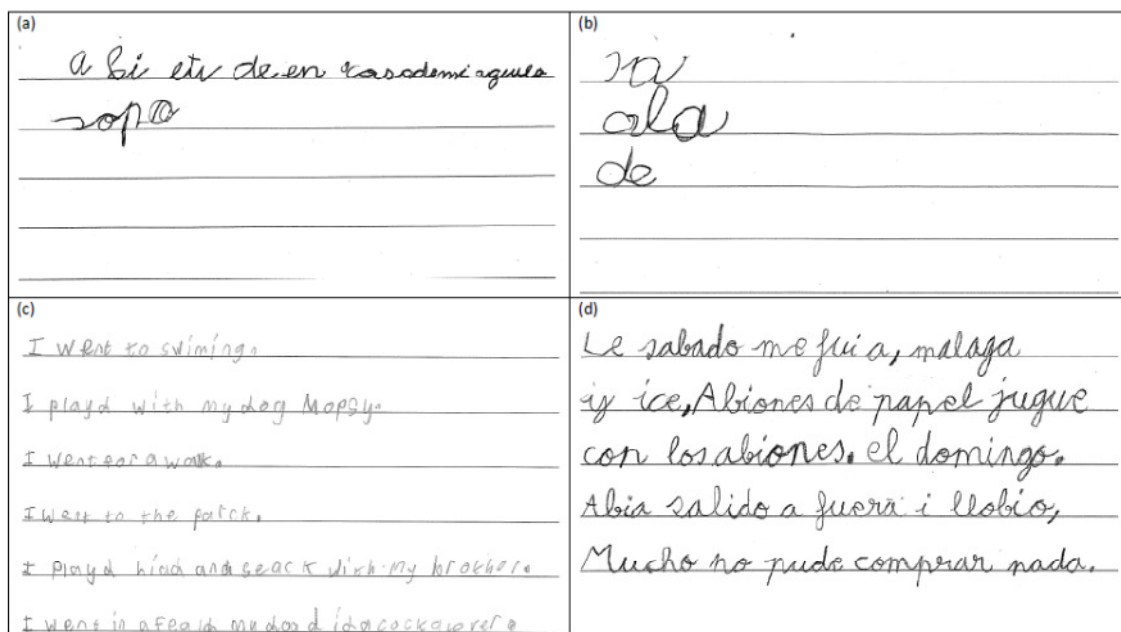 (a)
a Si etv de en casademi aguela
sopa
(b)
sa
ala
de
(c)
I went to swiming.
I playd with my dog Mopsy.
I went for a walk.
I went to the parck.
I playd hiad and seack with my brother.
I went in a feald my dad
(d)
Le sabado me fui a, malaga
iy ice, Abiones de papel jugue
con los abiones. el domingo.
Abia salido a fuera i llobio,
Mucho no pude comprar nada.